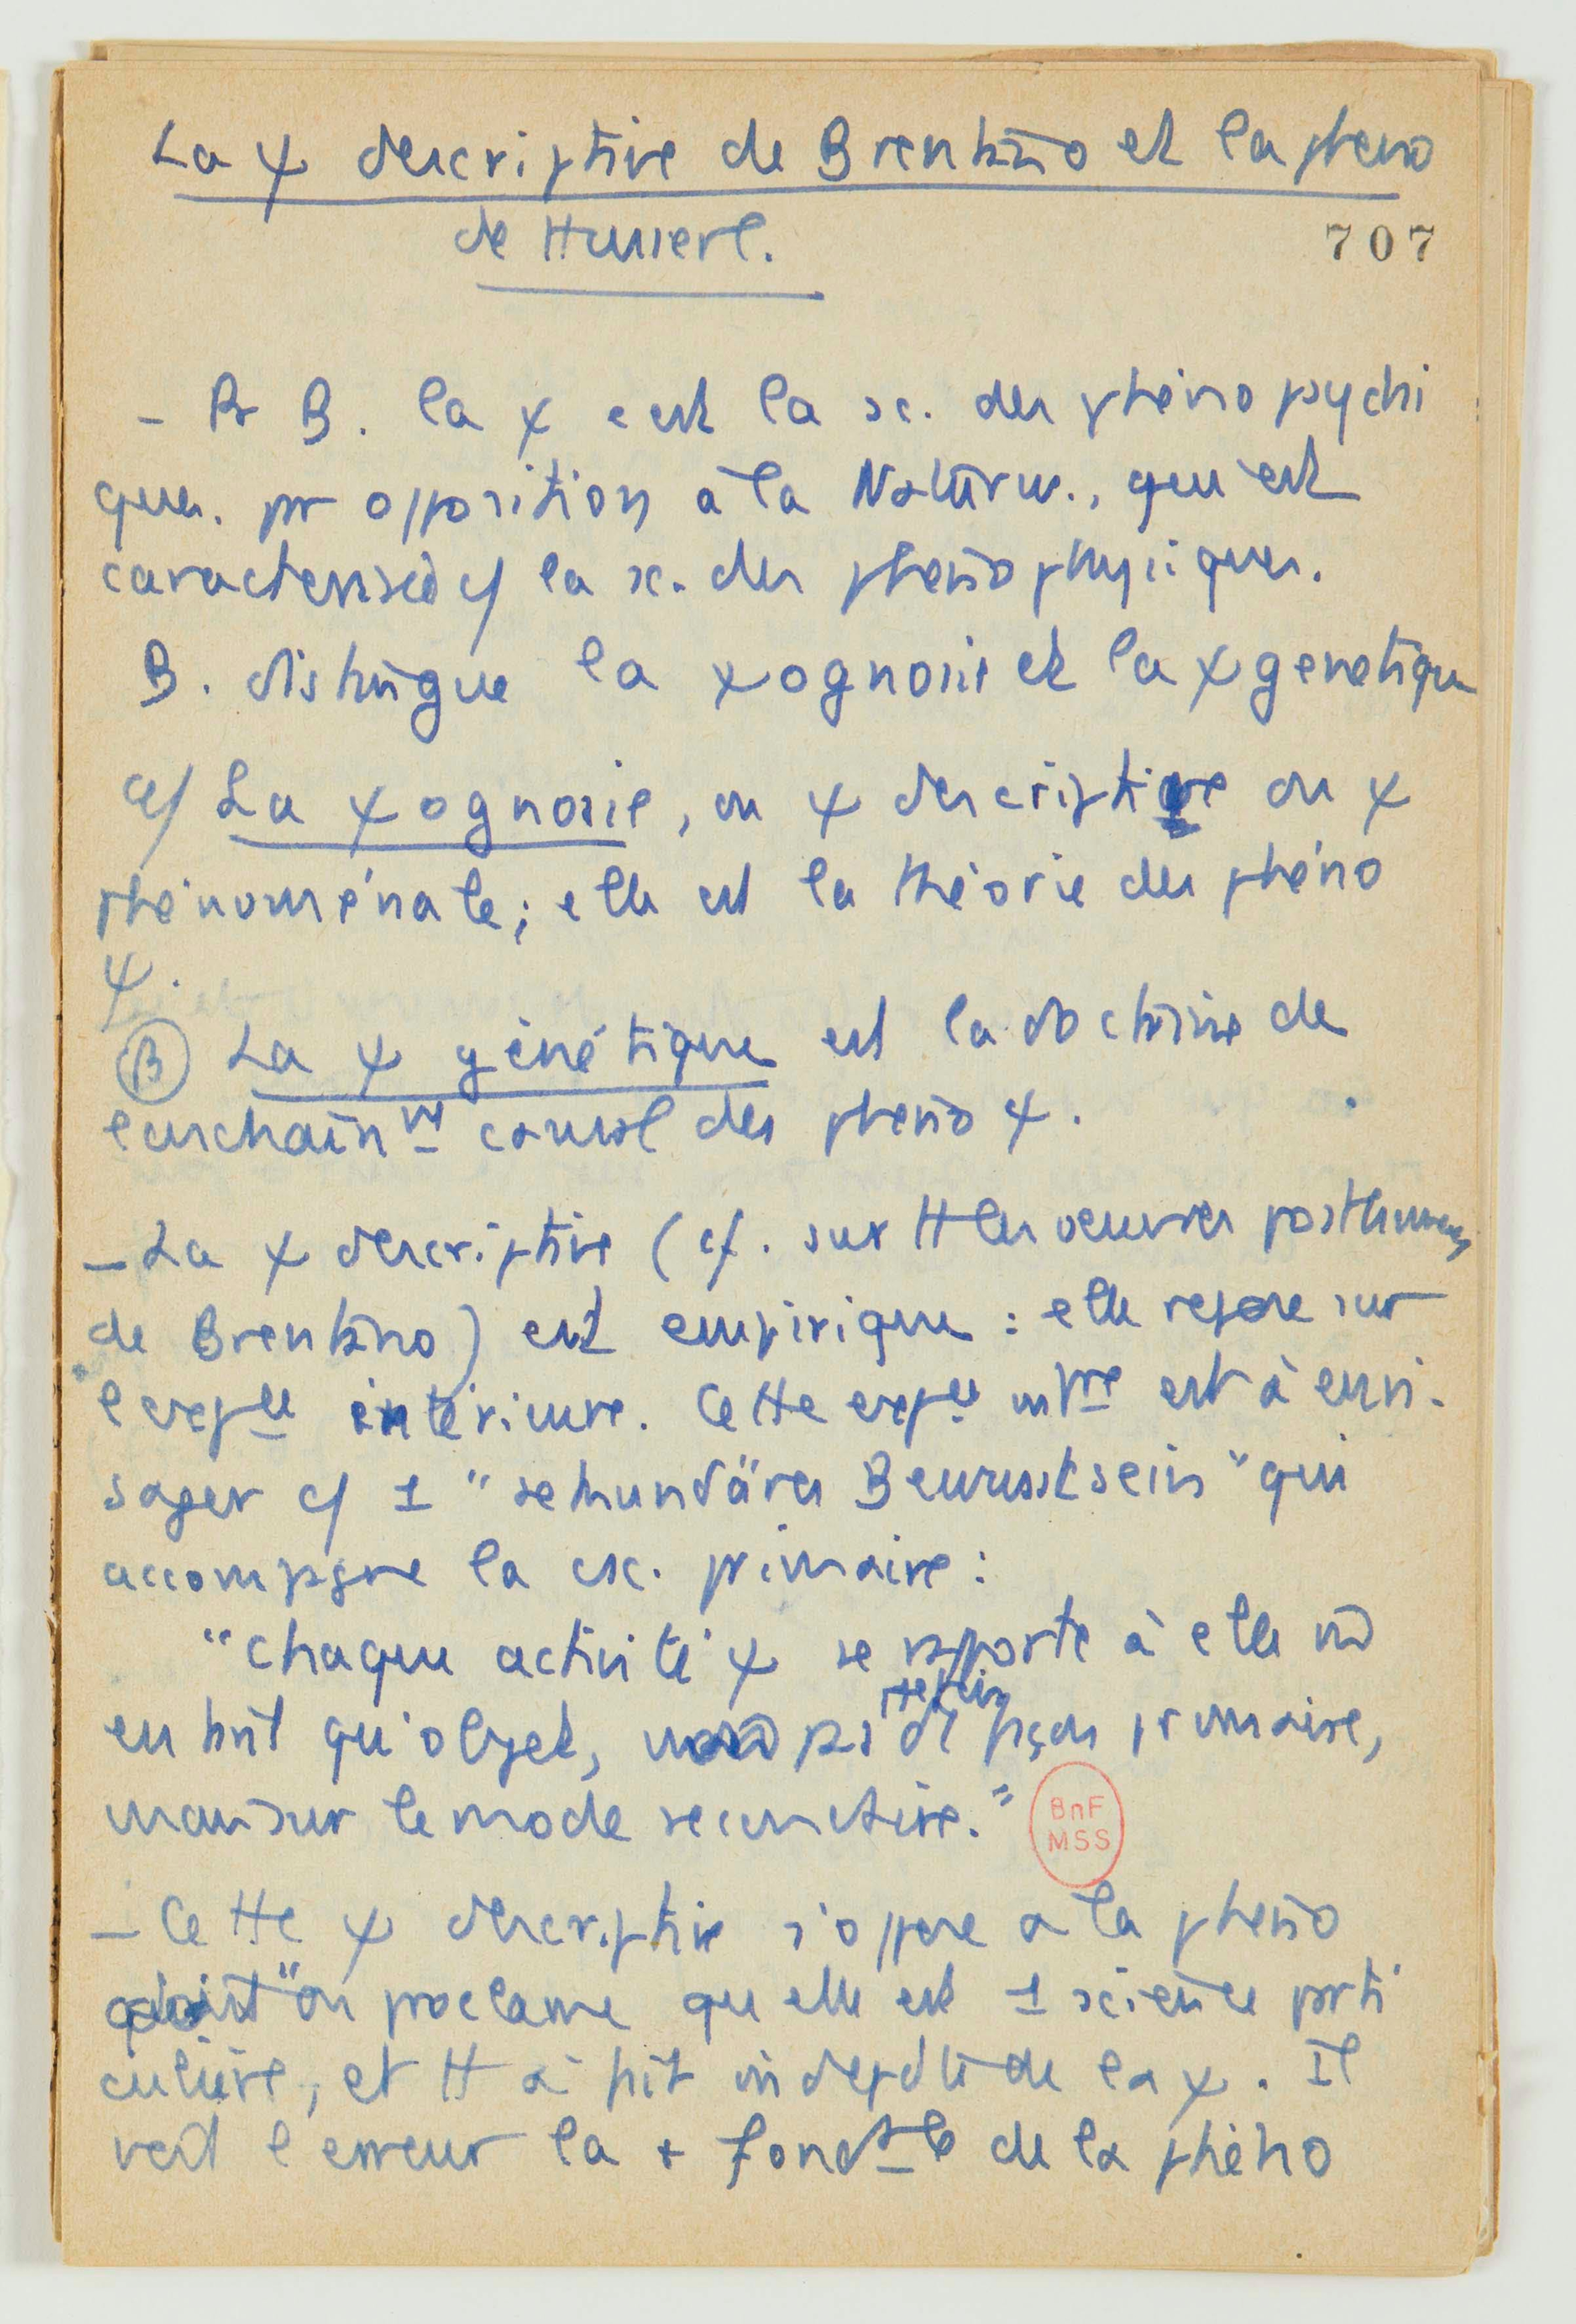 La ψ descriptive de Brentano et la pheno
de Husserl.
707
- Pr B. la ψ c est la sc. des phéno psychi
ques. pr opposition à la Naturw., qui est
caracterisée c/ la sc. des pheno physiques.
B. distingue la ψognosie et la ψ genetique
α/ La ψognosie, ou ψ descriptive ou ψ
phénoménale; elle est la théorie des phéno
ψ.
β La ψ génétique est la doctrine de
l'enchainmt causal des pheno ψ.
- La ψ descriptive (cf. surtt les oeuvres posthumes
de Brentano) est empirique : elle repose sur
l expce intérieure. Cette expce intre est à envi-
sager c/ 1 "sekundäres Bewusstsein" qui
accompagne la csc. primaire :
"Chaque activité ψ se rapporte à elle m̂
en tant qu'objet, pas de façon primaire,
mais sur le mode secondaire."
BnF
MSS
- Cette ψ descriptive s'oppose à la pheno
"on proclame qu elle est 1 science parti
culière, et tt à fait indepdte de la ψ. Il
voit l erreur la + fondtale de la phéno